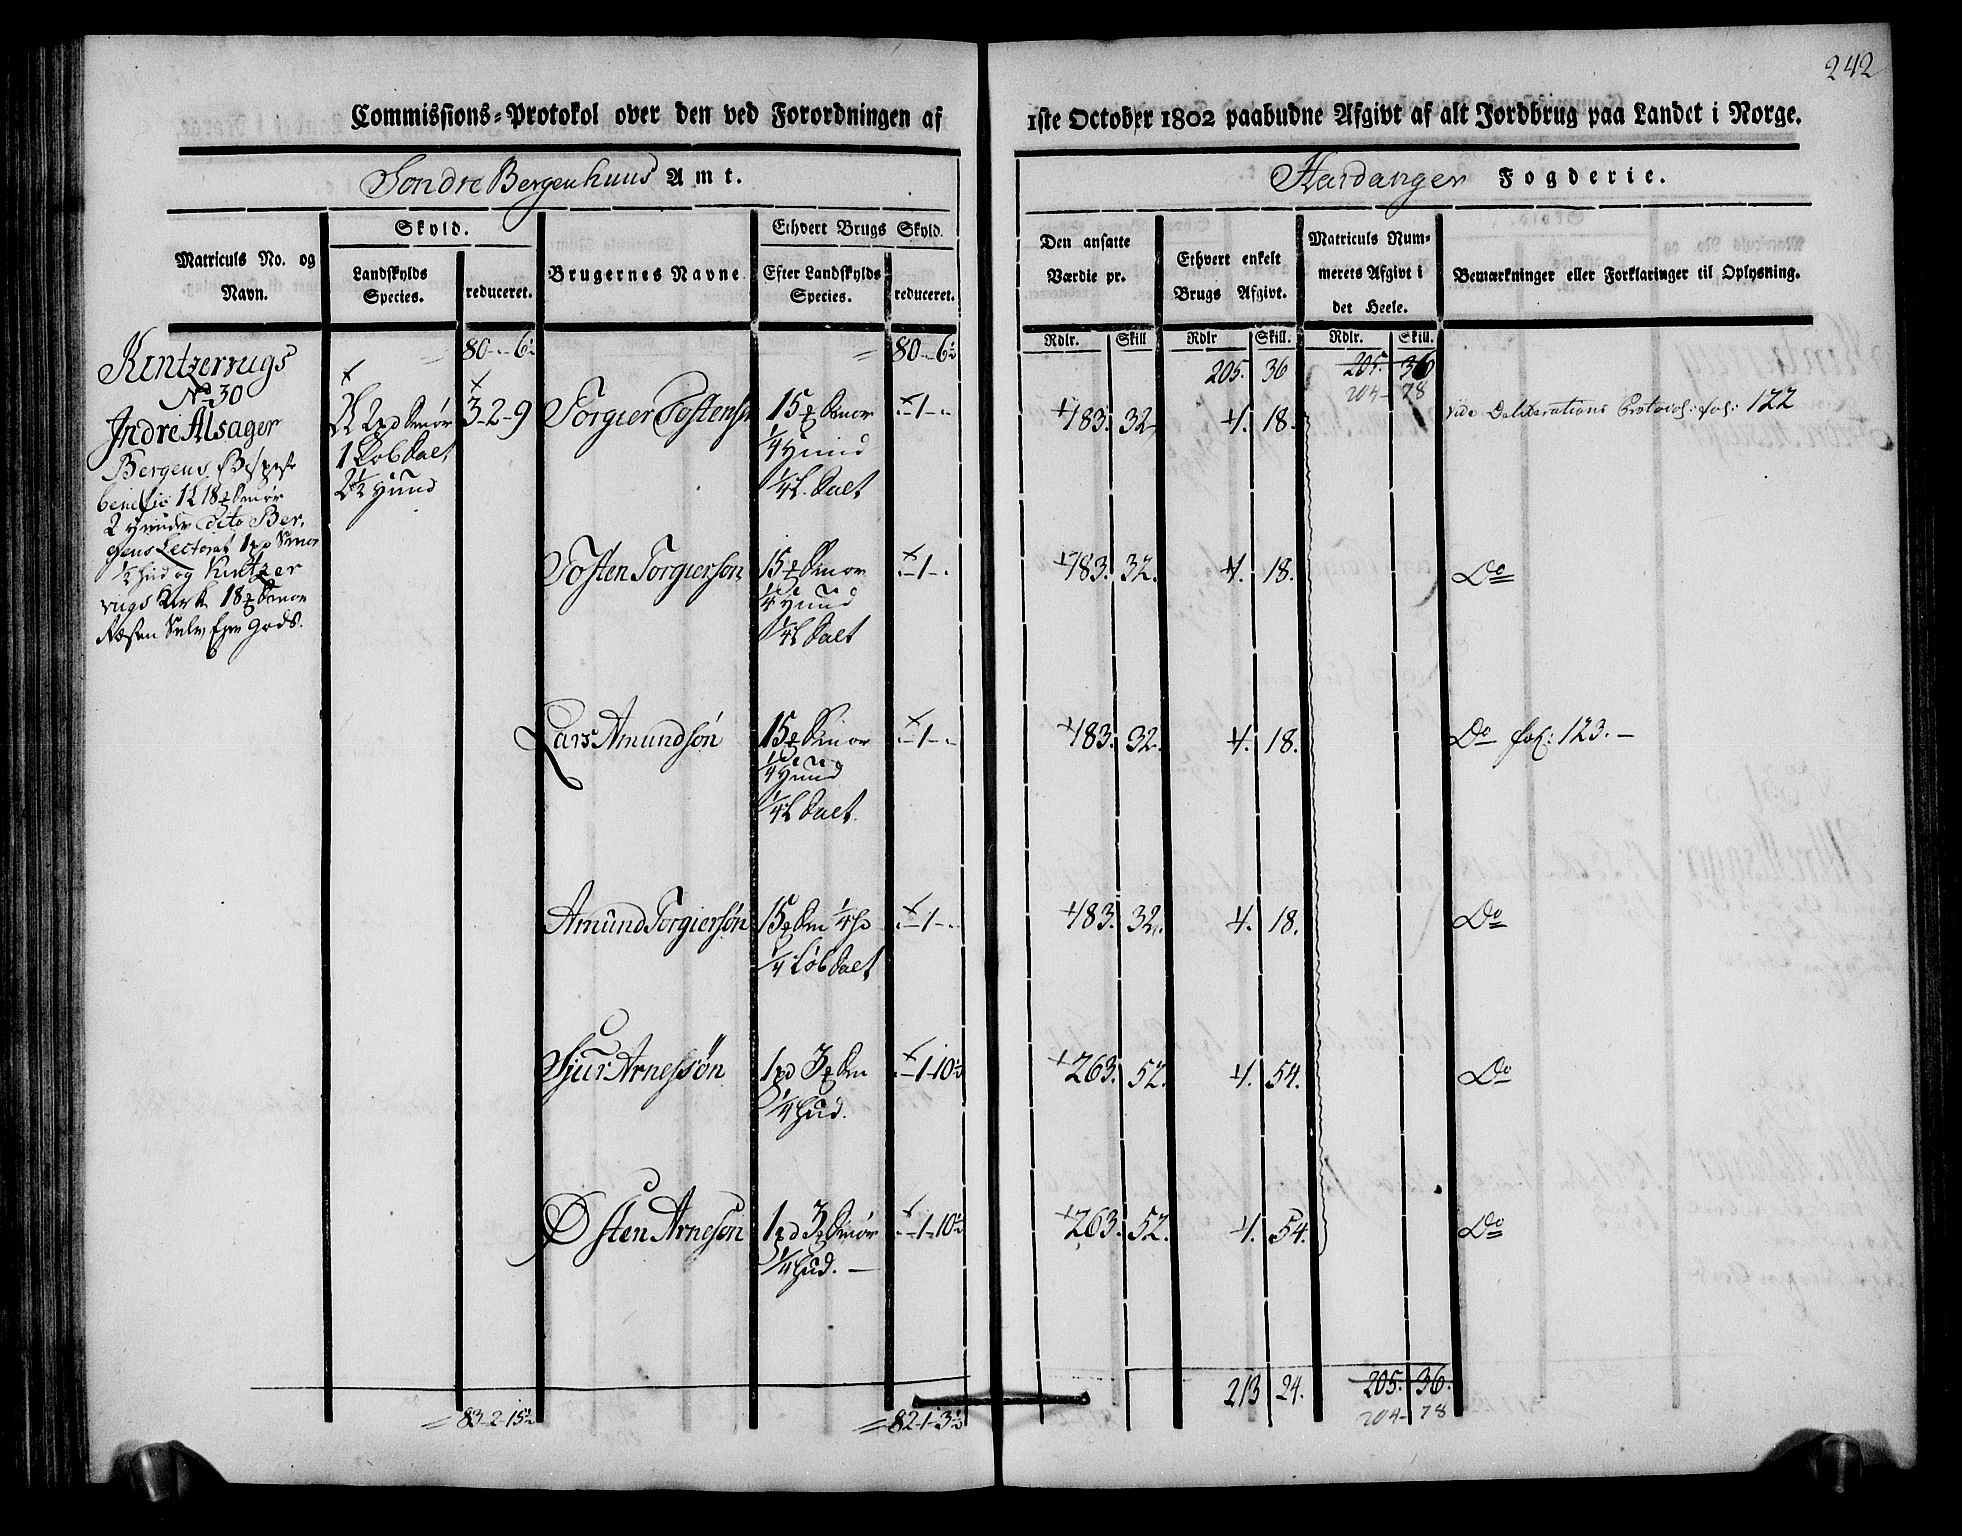 242
Commissions-Protokol over den ved Forordningen af 1ste October 1802 paabudne Afgivt af alt Jordbrug paa Landet i Norge.
Søndre Bergenhuus Amt. Hardanger Fogderie.
Matriculs No. og Navn.
Skyld.
Landskylds Species.
reduceret.
Brugernes Navne
Ethvert Brugs Skyld.
Efter Landskylds Species.
reduceret.
Den ansatte Værdie pr.
Ethvert enkelt Brugs Afgivt.
Matriculs Nummerets Afgivt i det Heele.
Bemærkninger eller Forklaringer til Oplysning.
Rdlr. Skill Rdlr Skill. Rdlr. Skill.
Kintzervigs = 80 - . - 6½ = 80 - 6½ 205. 36 205. 36
204 - 78
No 30
Indre Alsager
Bergens Bispes
benefic 1 L 18 ℔ Smør
2 Huuder dito Ber,
gens Lectorat 1 pd Smør
½ Hud og Kintzer
vigs Kirk 18 ℔ Smør
Næsten Selv Ejer Gods.
2 L 2 pd Smør 3-2-9
1 Løb Salt
2½ Huud
Torgier Tostensøn 15 ℔ Smør - 1 - . 183. 32. 4. 18. vide Deliberations Protocol: fol: 122
¼ Huud
¼ L. Salt
Tosten Torgiersøn 15 ℔ Smør - 1 - . 183. 32. 4. 18. Do
¼ Huud
¼ L Salt
Lars Amundsøn 15 ℔ Smør - 1 - . 183. 32. 4. 18. Do fol: 123. -
¼ Huud
¼ L Salt.
Amund Torgiersøn 15 ℔ Sm ¼ H - 1 - . 183. 32. 4. 18. Do
¼ Løb Salt
Sjur Arnessøn 1 pd 3 ℔ Sm - 1 - 10½ 263. 52. 4. 54. Do
¼ Hud.
Østen Arnesøn 1 pd 3 ℔ Smør - 1 - 10½ 263. 52. 4. 54. Do
¼ Hud. -
213 24. 205. 36.
= 83-2-15½ = 82-1-3½ 204 - 78